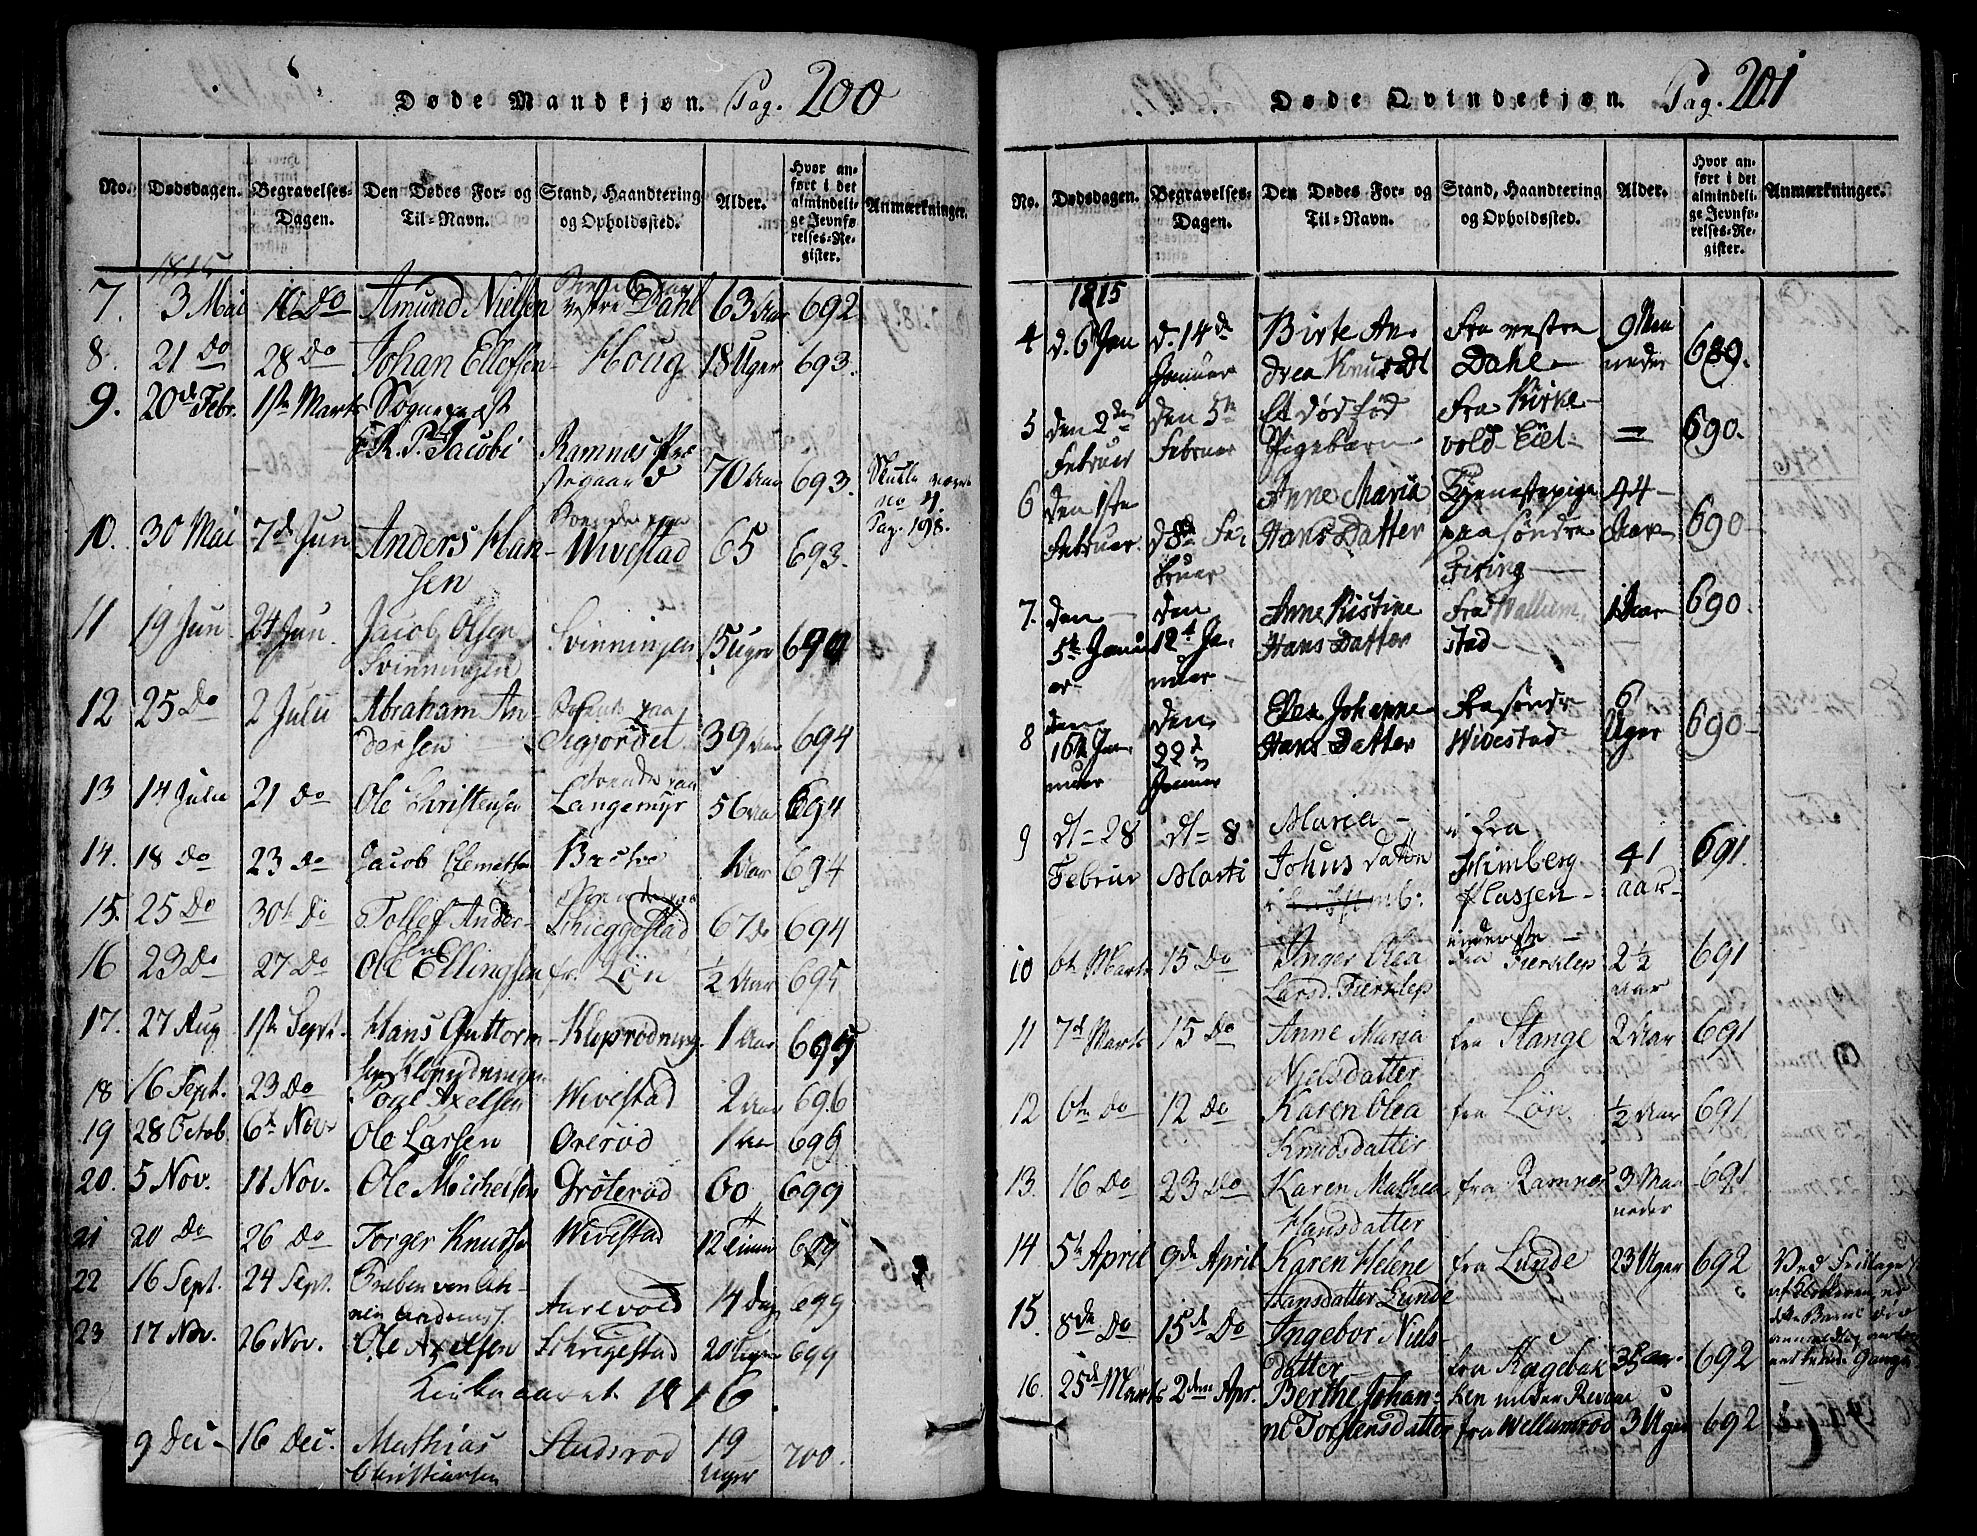 Døde Mandkjøn. Pag. 200
No. Dødsdagen. Begravelses-Dagen. Den Dødes For- og Til-Navn. Stand, Haandtering og Opholdssted. Alder. Hvor anført i det almindelige Jevnførelses-Register. Anmærkninger.
1815
7. 3 Mai 10 Do Amund Nielsen vestre Dahl 63 Aar 692
8. 21 Do 28 Do Johan Ellefsen Houg 18 Uger 693.
9. 20de Febr. 1ste Marts Sogneprest
R. P. Jacobi Ramnes Præstegaard 70 Aar 693. Skulle været no 4. Pag. 198.
10. 30 Mai 7de Jun Anders Hansen Wivestad 65 693.
11 19 Jun. 24 Jun. Jacob Olsen Svinningen Svinningen 15 Uger 694
12 25 Do 2 Julii Abraham Andersen Stgjordet 39 Aar 694
13 14 Julii 21 Do Ole Christensen Langemyr 56 Aar 694
14. 18 Do 23 Do Jacob Clemetsen 1 Aar 694
15. 25 Do 30te Do Tollef Andersen Schieggestad 67 Do 694
16 23 Do 27 Do Ole Ellingsen fr. Løn 1/2 Aar 695
17. 27 Aug 1ste Sept. Hans Guttormsen Kloprodningen Kloprodning 1 Aar 695
18 16 Sept. 23 Do Poul Axelsen Wivestad 2 Aar 696
19 28 Octob. 6te Novr Ole Larsen Orerød 1 Aar 699
20. 5 Nov. 11 Nov. Ole Michelsen Grøterød 60 699
21 20 Do 26 Do Torger Knudsen Wivestad 12 Timer 699
22 16 Sept. 24 Sept. Aarevold 14 Dag 699
23 17 Nov. 26 Nov. Ole Axelsen Schigestad 20 Uger 699
Kirkeaaret 1816.
9 Dec. 16 Dec. Mathias Christiansen Stadsrod 19 Uger 700.
Døde Qvindekjøn. Pag. 201
No. Dødsdagen. Begravelses-Dagen. Den Dødes For- og Til-Navn. Stand, Haandtering og Opholdssted. Alder. Hvor anført i det almindelige Jevnførelses-Register. Anmærkninger.
1815
4 d. 6 Jan d. 14de Januar Birte Andrea Knudsdt Fra vestre Dahl 9 Maaneder 689.
5 den 2den Februar den 5te Februar Et dødfød Pigebarn Fra Kirkevold Eiet = 690.
6 den 1ste Februar. d 8de Februar Anne Maria Hans Datter Tjenestepige paa søndre Firing 44 Aar 690
7. den 5te Januar den 12te Januar Anne Kistine Hans Datter fra Wallumstad 1 Aar 690
8 den 16de Januar den 22de Januar Johanne Hans Datter Fra søndr Wivestad 6 Uger 690
9 d = 28 Februar d = 8 Marti Maria Johns Datter fra Himberg Plassen 41 aar 691.
10 6te Marts 15 Do Inger Olea Larsd. Fierklep inderste fra Fierklep 2 1/2 aar 691
11 7de Marts 15 Do Anne Maria Nielsdatter fra Stange 2 Aar 691
12 6te Do 12 Do Karen Olea Knudsdatter fra Løn 1/2 Aar 691
13. 16 Do 23 Do Karen Mathea Hansdatter fra Ramnes 3 Maaneder 691
14. 5te April 9de April Karen Helene Hansdatter Lunde fra Lunde 23 Uger 692 Ved
15. 8de Do 15de Do Ingebor Nielsdatter fra Kagebak 35 Aar. 692
16. 25de Marts 2den Apr. Berthe Johanne Torstensdatter fra Wellumrod 3 Uger 692